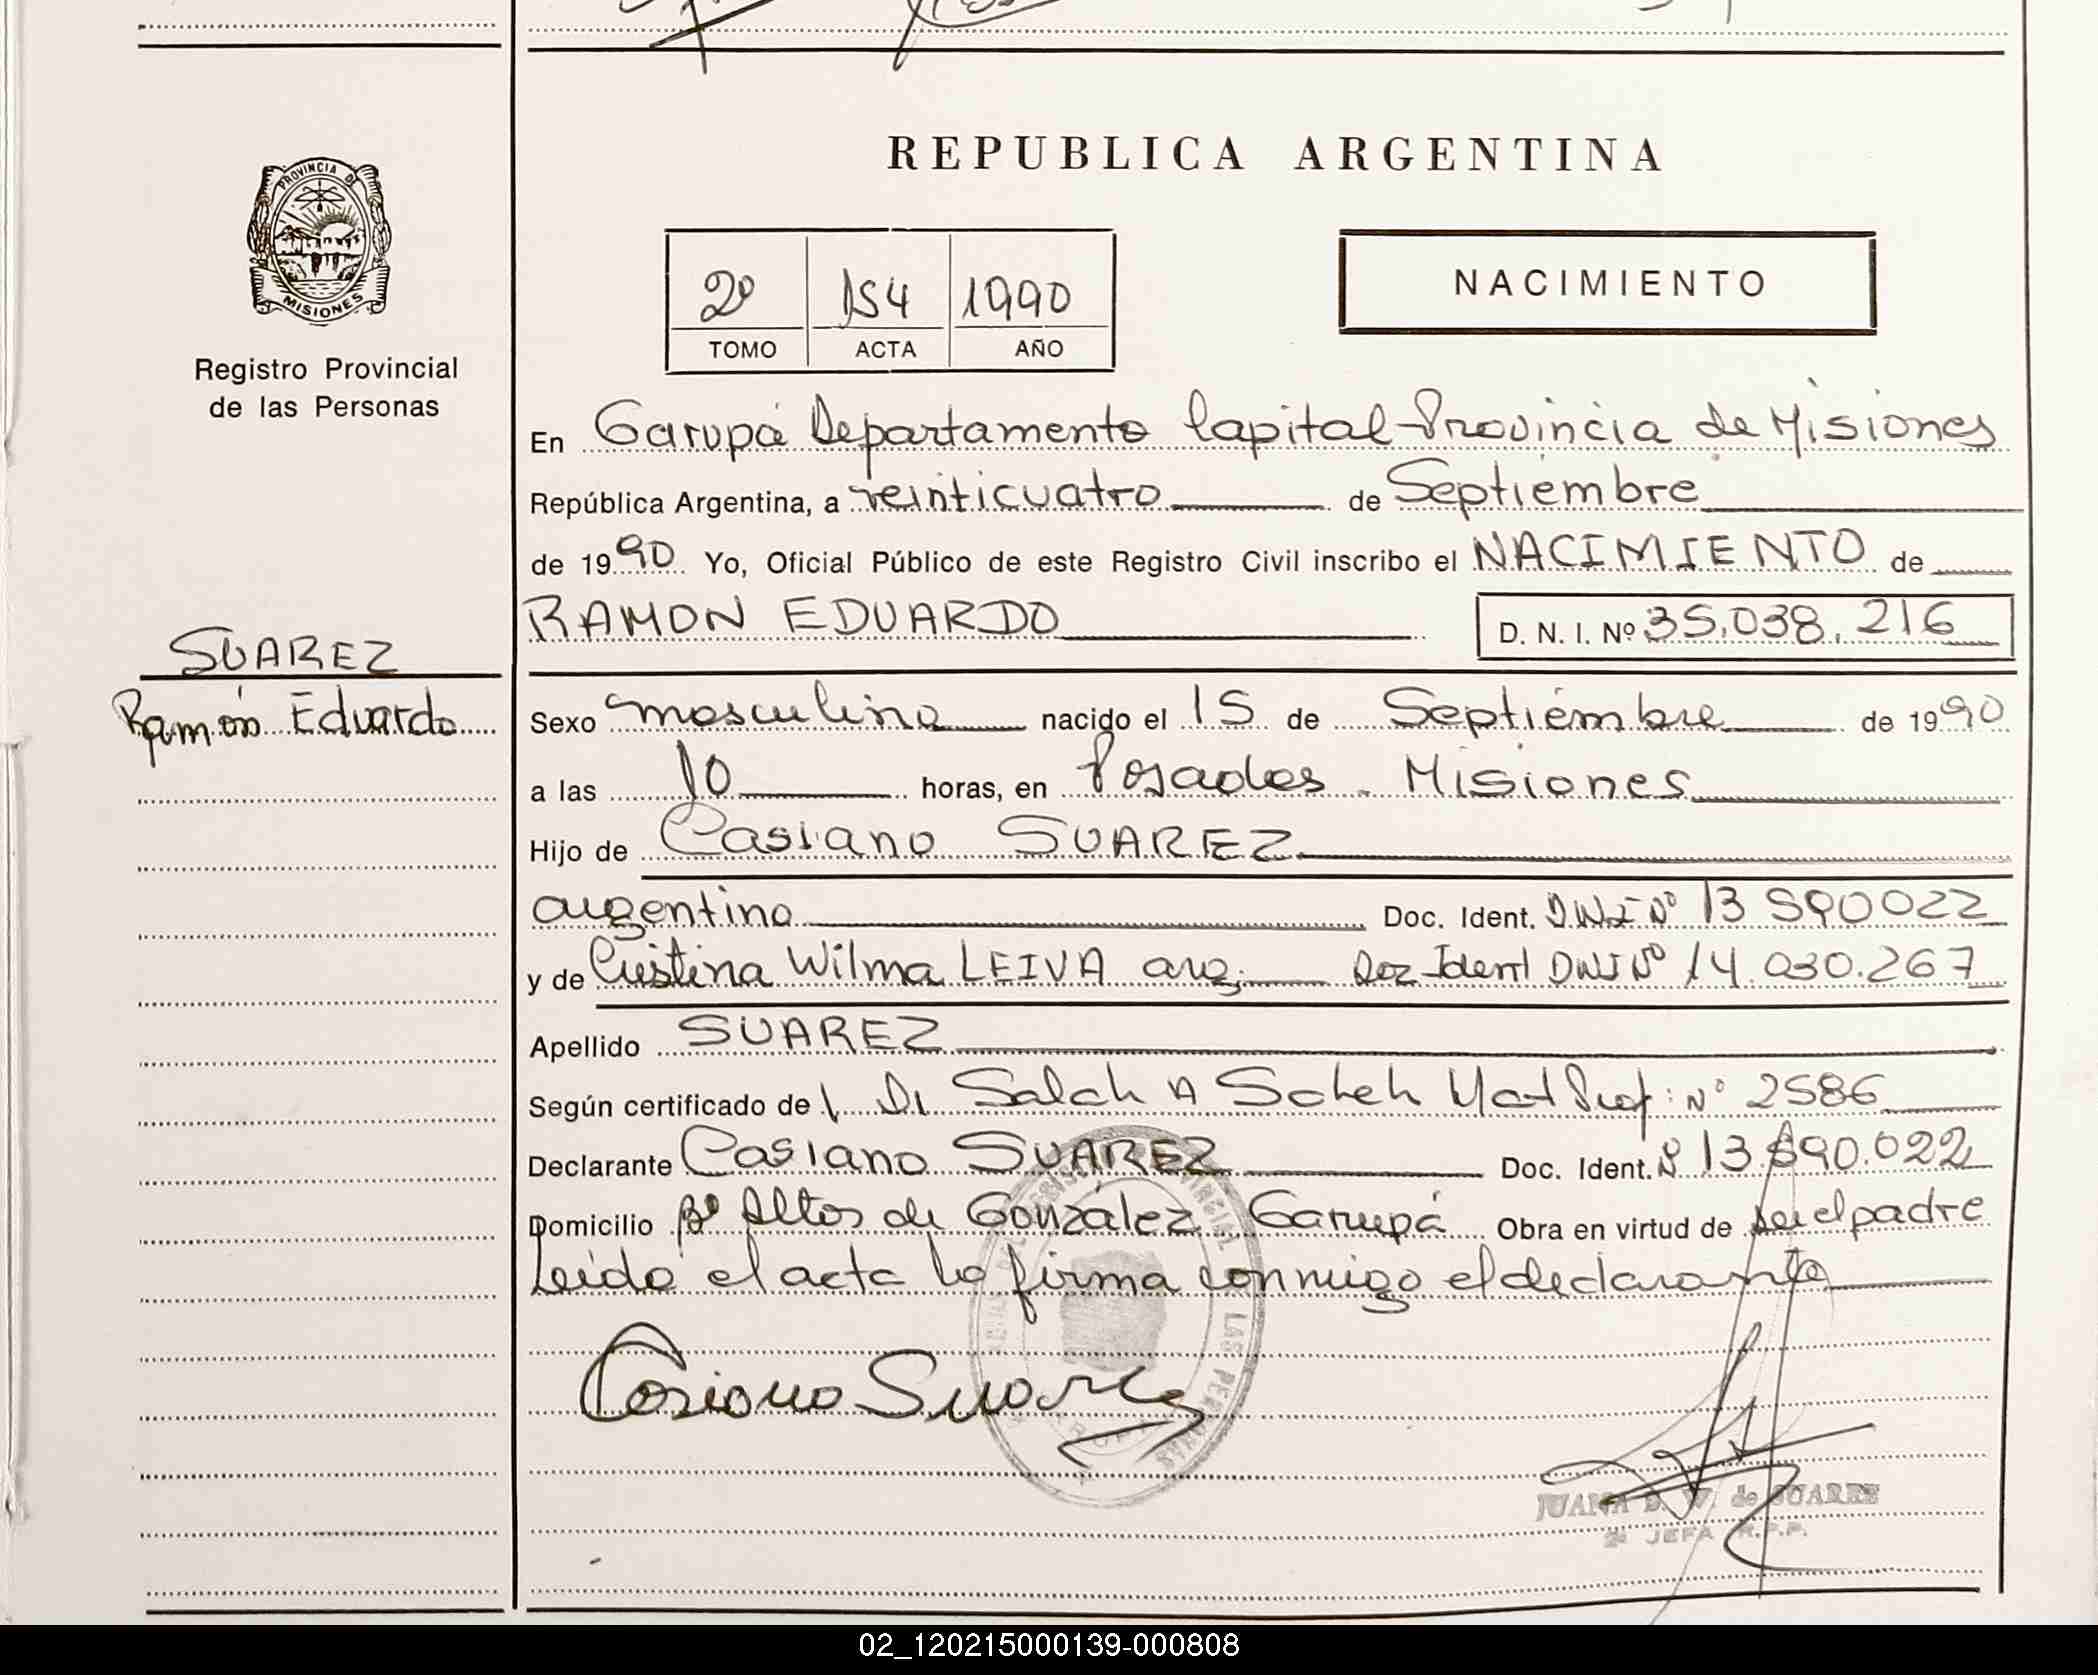 REPUBLICA ARGENTINA
PROVINCIA DE
MISIONES
Registro Provincial
de las Personas
2º 154 1990
TOMO ACTA AÑO
NACIMIENTO
En Garupá Departamento Capital Provincia de Misiones
República Argentina, a veinticuatro de Septiembre
de 1990 Yo, Oficial Público de este Registro Civil inscribo el NACIMIENTO de
RAMON EDUARDO D. N. I. Nº 35.038.216
SUAREZ
Ramón Eduardo
Sexo masculino nacido el 15 de Septiembre de 1990
a las 10 horas, en Posadas. Misiones
Hijo de Casiano SUAREZ
argentino Doc. Ident. DNI Nº 13 590022
y de Cristina Wilma LEIVA arg. Doc Ident DNI Nº 14.030.267
Apellido SUAREZ
Según certificado de Dr Nº 2586
Declarante Casiano SUAREZ Doc. Ident. 13.590.022
Domicilio Bº Altos de González Garupá Obra en virtud de ser el padre
Leída el acta la firma conmigo el declarante
Casiano Suarez
JUANA D. W. de SUARES
JEFA R.P.P.
02_120215000139-000808